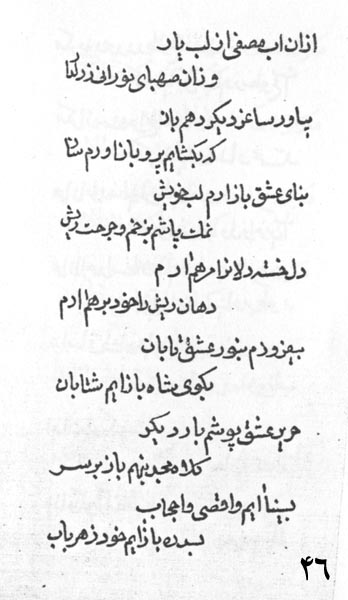 ازان اب مصفی از لب یار
وزان صهبای نورانی زرکنا
بیاور ساغر دیکر دهم باز
که بکشایم پر و باز اورم ساز
بنای عشق بازارم لب خویش
نمک پاشم بزخم و جرحت ریش
دل خسته دلانرا مرهم ارم
دهان ریش را خود برهم ارم
بیفروزم بنور عشق تابان
بکوی شاه باز ایم شتابان
حریر عشق پوشم بار دیکر
کلاه مجد بنهم باز بر سر
بسینا ایم و اقصی و احجاب
بسدره باز ایم خود زهر باب
۴۶